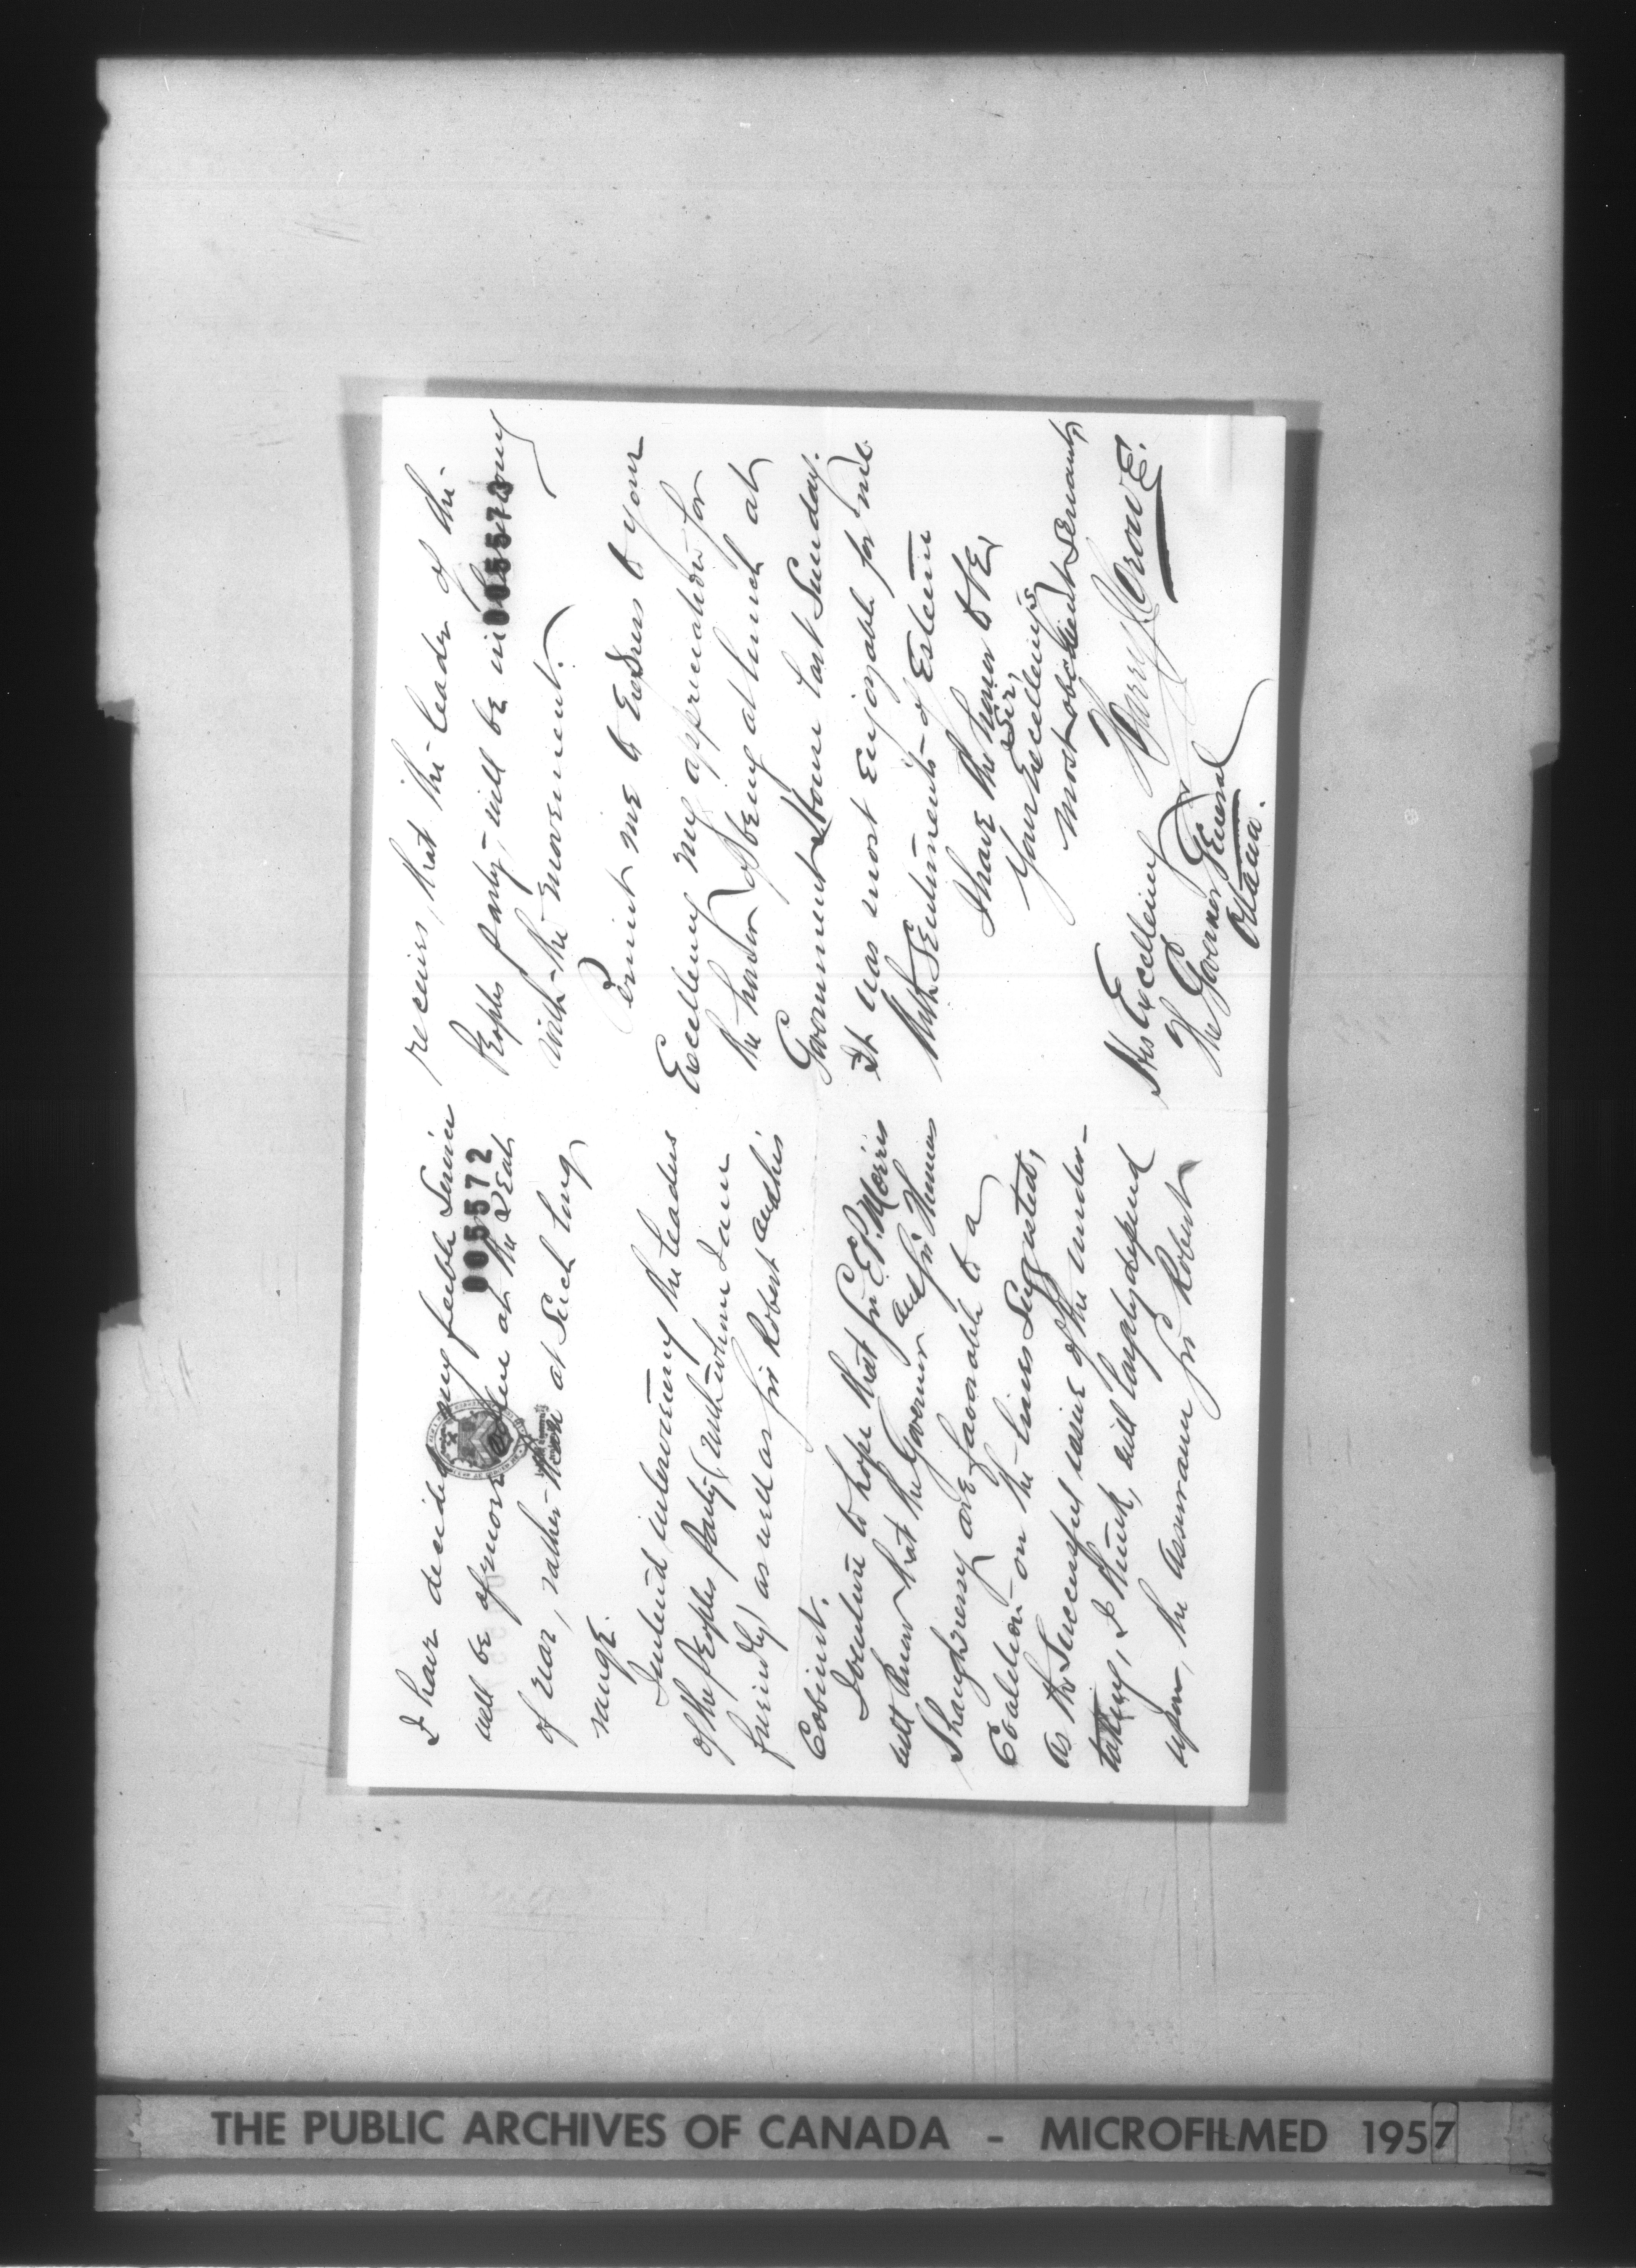 I have decided my feeble service
005572
will be of more value at the seat
of war, rather than at such long
range.
I intend interviewing the leaders
of the Peoples party (with whom I am
friendly) as well as Sir Robert and his
Cabinet.
I venture to hope that Sir E P. Morris
will know that the Governor and Sir Thomas
Shaughnessy are favorable to a
Coalition on the lines suggested,
as the successful issue of the under-
taking, I think, will largely depend
upon, the assurance Sir Robert
receives, that the leader of the
005573
Peoples party, will be in
with the movement.
Permit me to Express to your
Excellency my appreciation for
the honor of being at lunch at
Government House last Sunday.
It was most enjoyable for me
With Sentiments of Esteem
I have the honor to be,
Sir,
Your Excellency's
most obedient servant,
Harry J. Crowe.
His Excellency
The Governor General
Ottawa.
THE PUBLIC ARCHIVES OF CANADA - MICROFILMED 1957